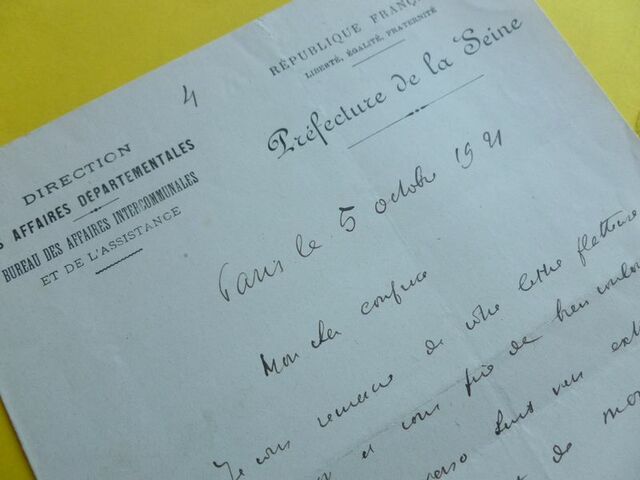 4
RÉPUBLIQUE FRANÇ
LIBERTÉ, ÉGALITÉ, FRATERNITÉ
Préfecture de la Seine
DIRECTION
S AFFAIRES DÉPARTEMENTALES
BUREAU DES AFFAIRES INTERCOMMUNALES
ET DE L'ASSISTANCE
Paris le 5 octobre 1921
Mon cher confrère
Je vous remercie de votre lettre flatteuse
et vous prie de bien vouloir
vers
de